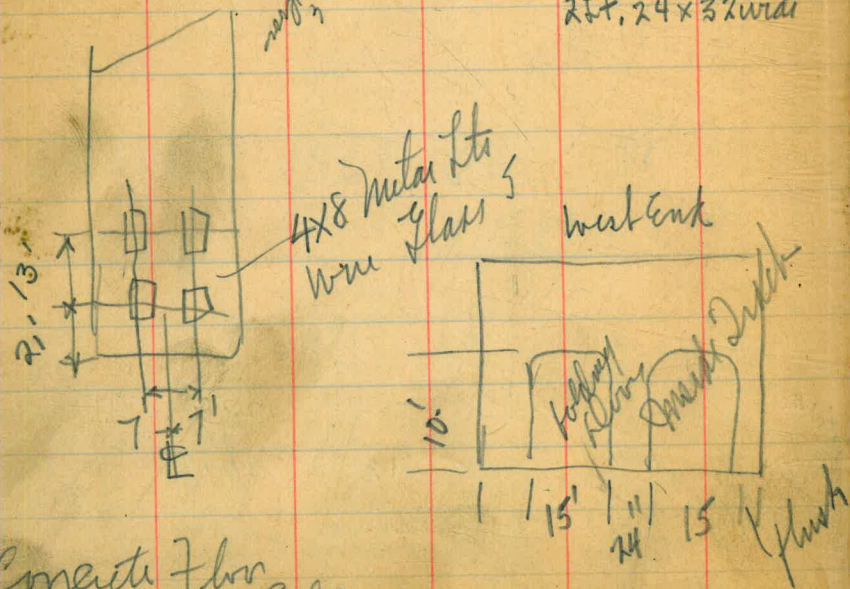 2 Lt. 24 x 32
4X8 Metal Lts
Wire Glass
West End
13'
21'
7 7'
℄
10'
Folding
Doors
Inside
15' 24" 15
flush
Concrete Floor